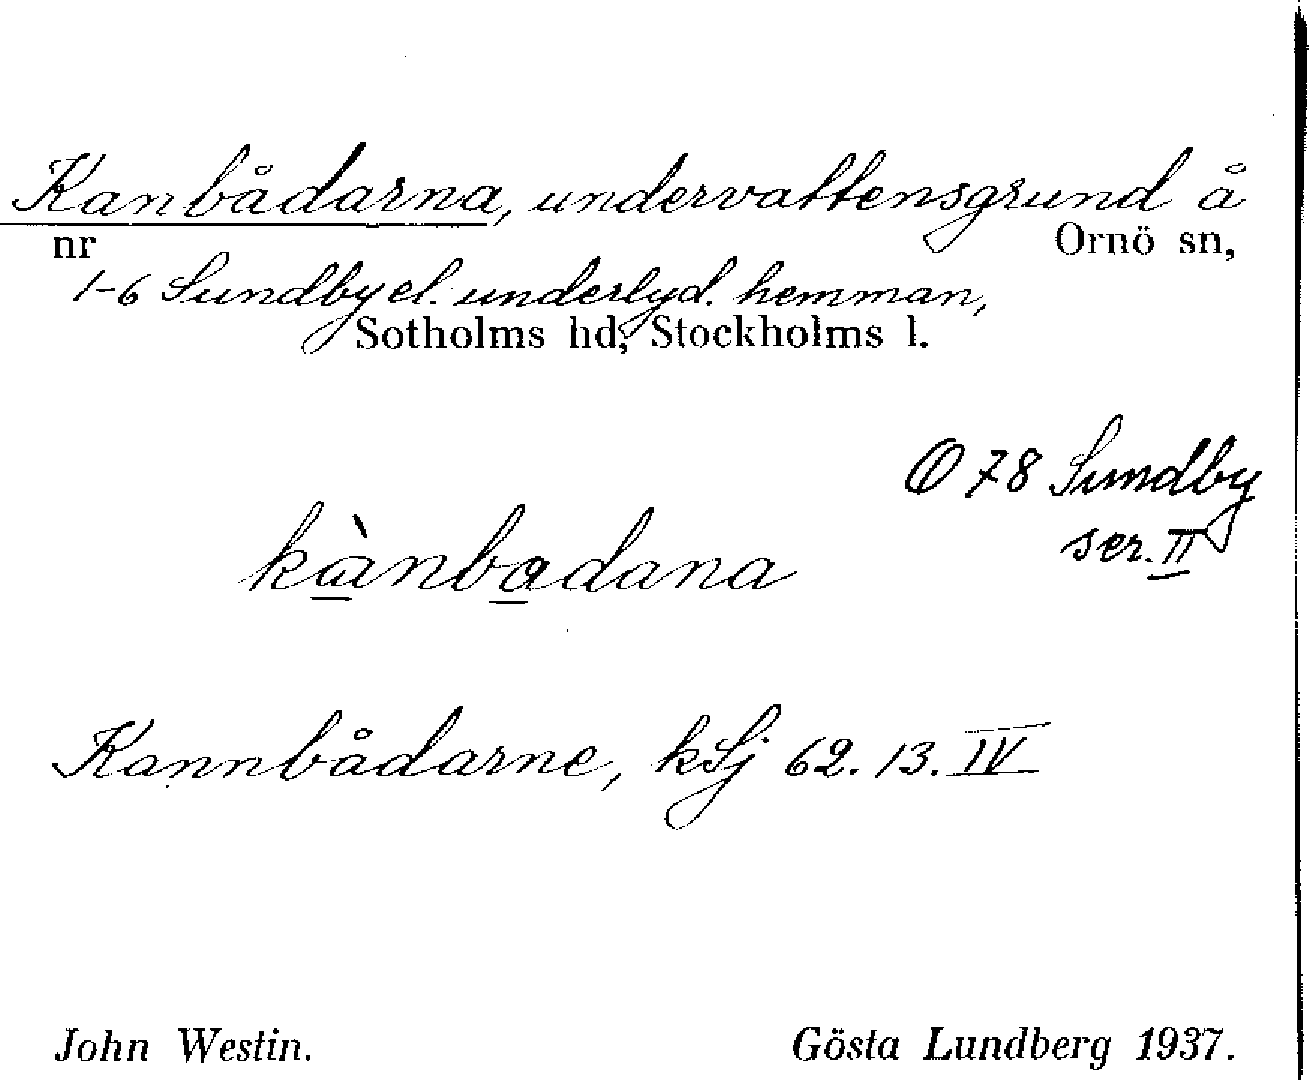 Kanbådarna, undervattensgrund å
nr Ornö sn,
1-6 Sundby el. underlyd. hemman,
Sotholms hd, Stockholms l.
O 78 Sundby
ser. II
kànbadana
Kannbådarne, kSj 62. 13. IV
John Westin. Gösta Lundberg 1937.